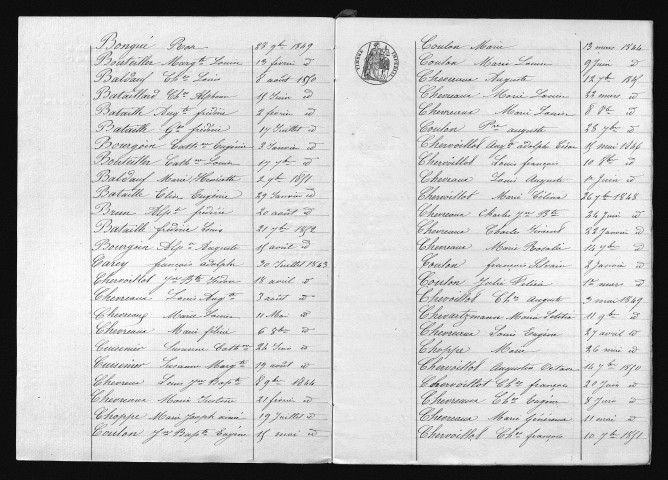 Bonqué Rosa 28 9bre 1849
Bouteiller Margte Louise 13 février d
Baldauf Chs Louis 8 août 1850
Bataillard Chs Alphonse 15 Juin d
Bataille Augte frédéric 2 février d
Bataille Gve frédéric 17 Juillet d
Bourgoin Cathne Eugénie 3 Janvier d
Bouteiller Cathne Louise 17 7bre d
Baldauf Marie Henriette 2 9bre 1851
Bataille Elise Eugénie 29 Janvier d
Brun Alpse frédéric 20 août d
Bataille frédéric Louis 21 7bre 1852
Bourgoin Alpse Auguste 15 avril d
Carey françois adolphe 30 Juillet 1843
Chervoillot Jean Bte Isidore 18 avril d
Chevreaux Louis Augte 3 août d
Chevreaux Marie Louise 11 Mai d
Chevreaux Marie félicie 6 8bre d
Cuisenier Suzanne Cathne 22 Juin d
Cuisenier Suzanne Margte 19 août d
Chevreux Louis Jean Bapte 8 9bre 1844
Chevreaux Marie Justine 21 février d
Choppe Marie Joseph aimé 19 Juillet d
Coulon Jean Bapte Eugène 15 mai d
TIMBRE IMPERIAL
Coulon Marie 13 mars 1844
Coulon Marie Louise 9 Juin d
Chevreaux Auguste 12 7bre 1845
Chevreaux Marie Louise 22 mars d
Chevreaux Marie Louise 8 8bre d
Coulon Pre auguste 28 7bre d
Chervoillot Augte adolphe Léon 15 mai 1846
Chervoillot Louis françois 10 8bre d
Chevreaux Louis Auguste 10 Juin d
Chervoillot Marie Célina 26 7bre 1848
Chevreaux Charles Jean Bte 24 Juin d
Chevreaux Charles Vivand 22 Janvier d
Chevreaux Marie Rosalie 14 7bre d
Coulon françois Silvain 2 Janvier d
Coulon Julie Félicie 1er mars d
Chervoillot Chs August 3 mai 1849
Chwartzmann Marie Lolitia 11 9bre d
Chevreaux Louis Eugène 27 avril d
Choppe Marie 26 mai d
Chervoillot Augustin Octave 14 7bre 1850
Chervoillot Chs françois 20 Juin d
Chevreaux Chs Eugène 8 Juin d
Chevreaux Marie Généreux 11 mai d
Chervoillot Chs françois 10 7bre 1851